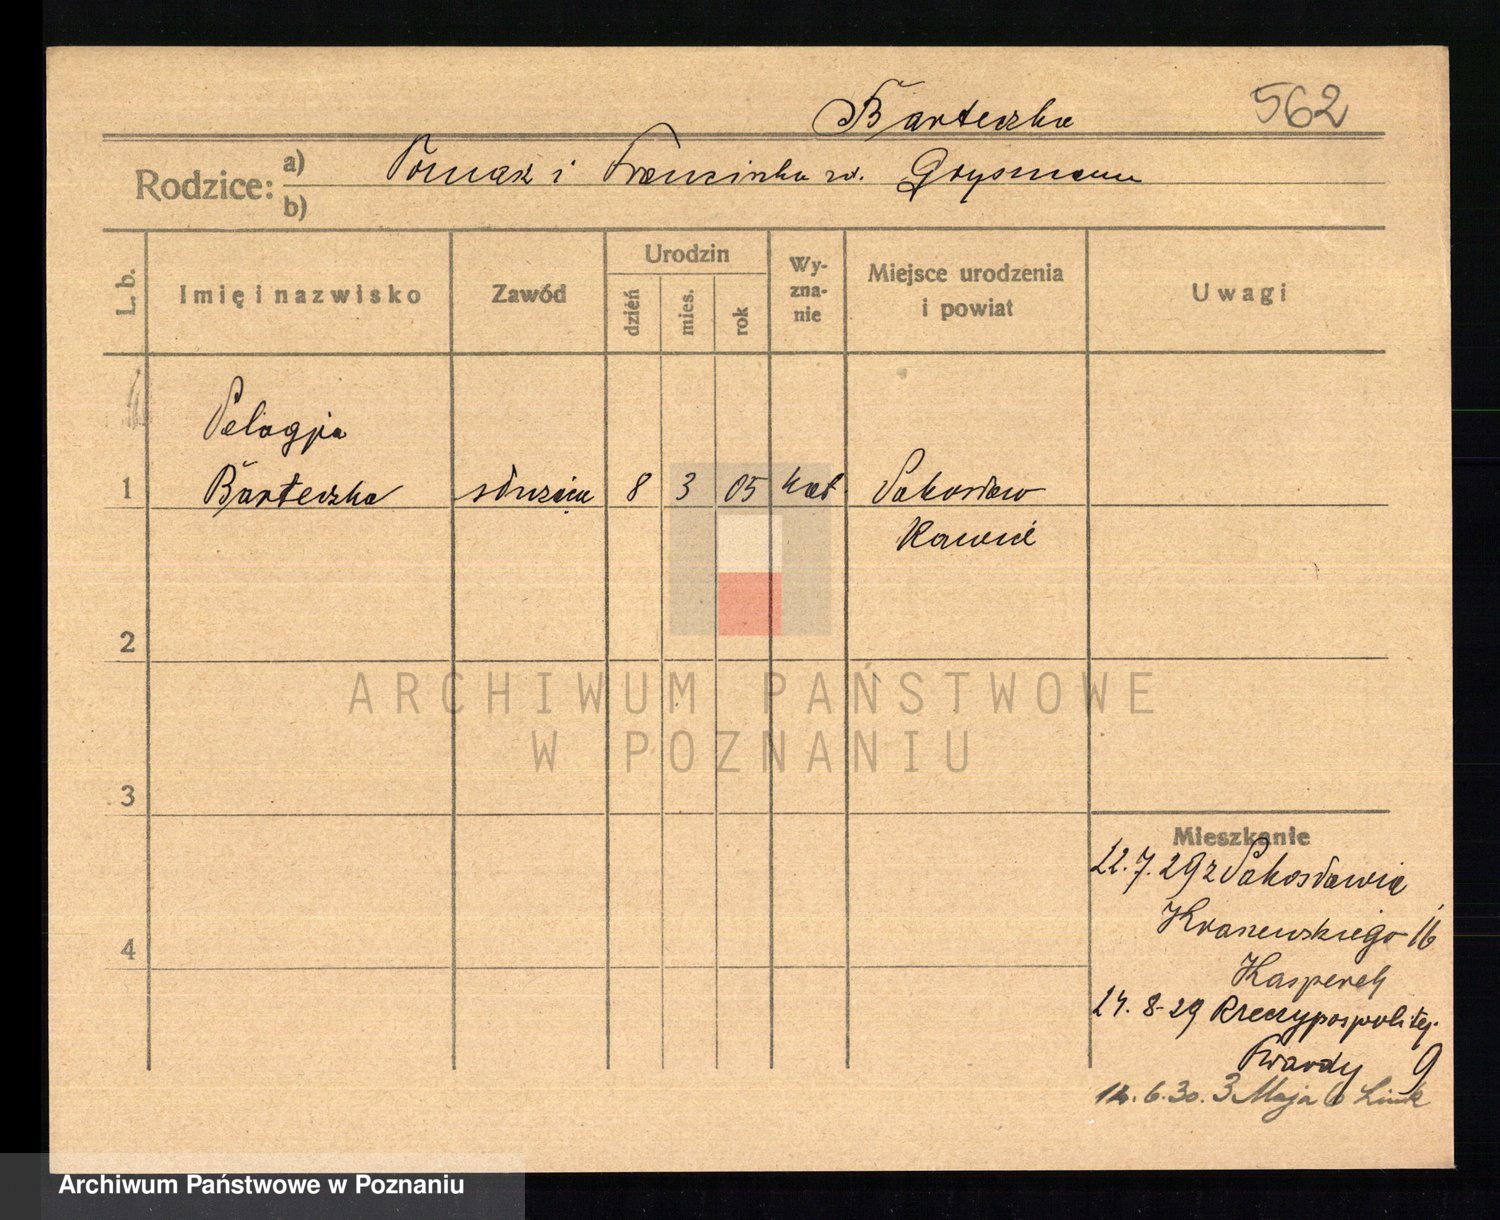 Barteczka 562
Rodzice: a) b) Tomasz i Franciszka z d. Grysmann
L. b. Imię i nazwisko Zawód Urodzin dzień mies. rok Wy-zna-nie Miejsce urodzenia i powiat Uwagi
Pelagja
1 Barteczka służąca 8 3 05 kat. Pakosław
Rawicz
2
ARCHIWUM PAŃSTWOWE
W POZNANIU
3
Mieszkanie
22.7.29 z Pakosławia
Kraszewskiego 16
4
Kasperek
24.8-29 Rzeczypospolitej
Twardy 9
14.6.30. 3 Maja 6 Link
Archiwum Państwowe w Poznaniu